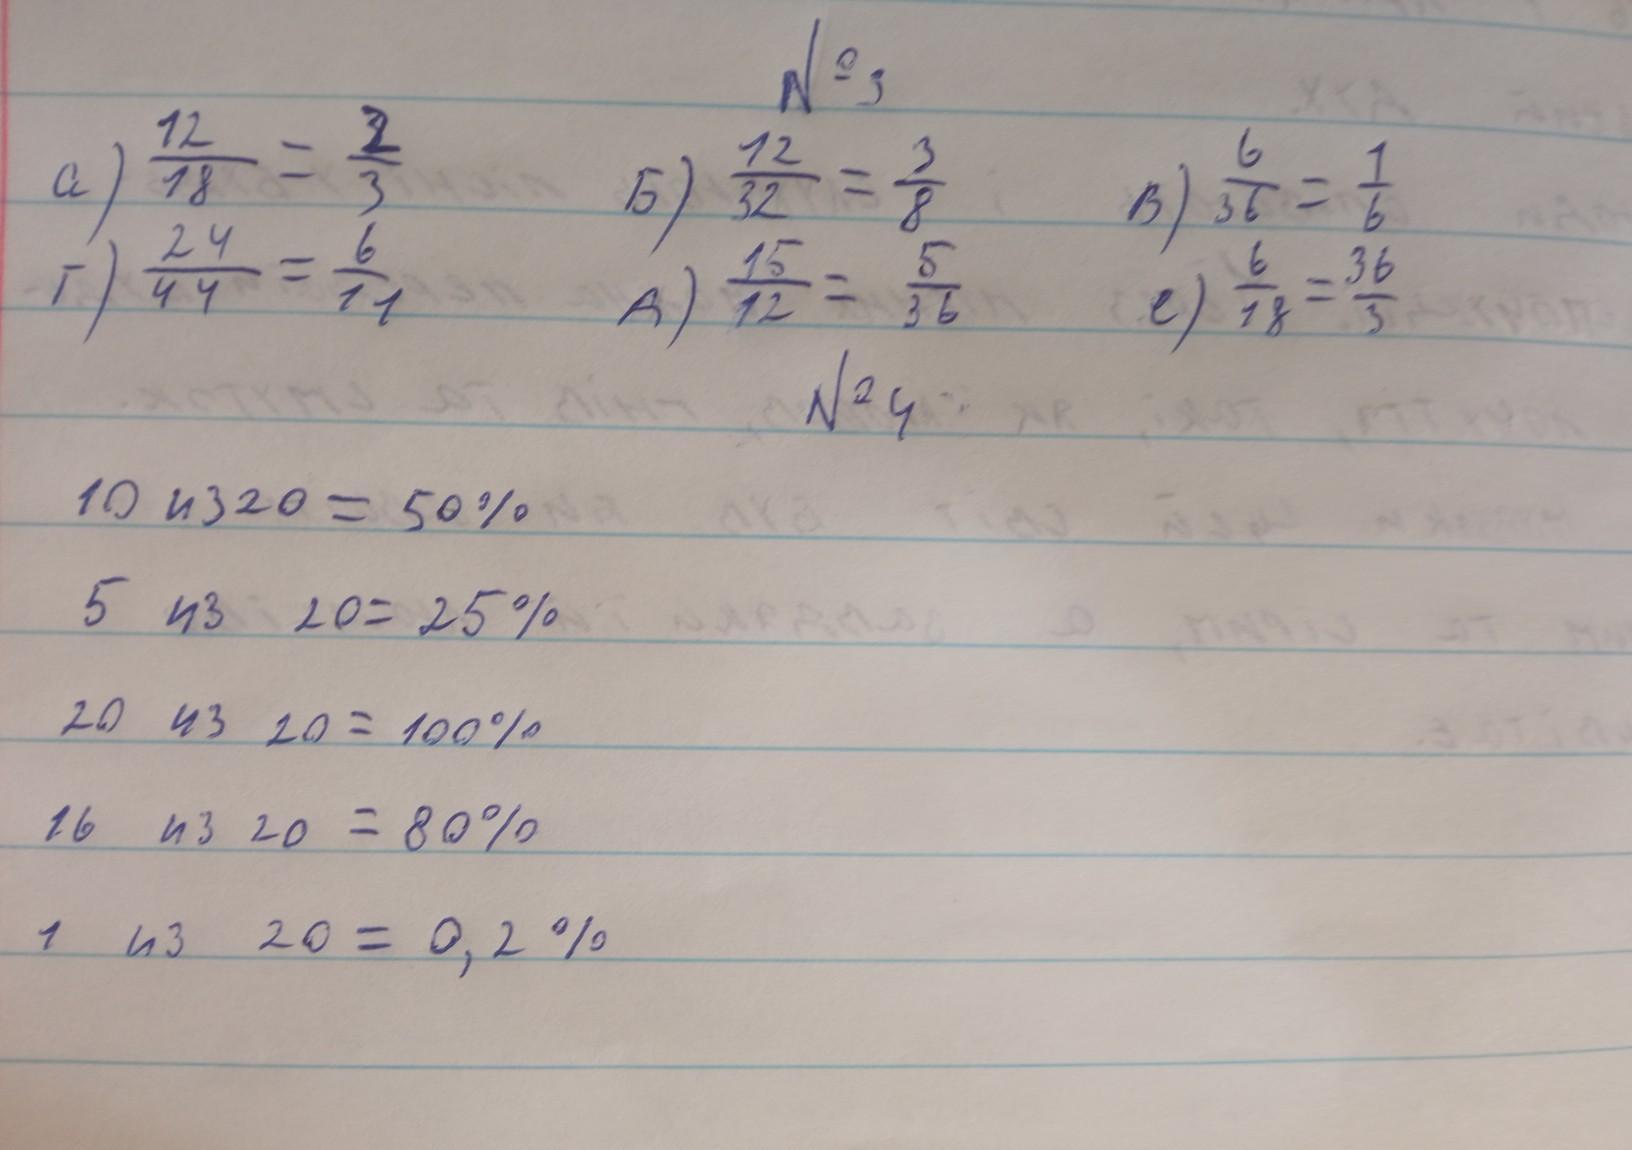 №3
а) 12/18 = 2/3 Б) 12/32 = 3/8 В) 6/36 = 1/6
Г) 24/44 = 6/11 Д) 15/12 = 5/36 е) 6/18 = 36/3
№4
10 из 20 = 50%
5 из 20 = 25%
20 из 20 = 100%
16 из 20 = 80%
1 из 20 = 0,2%